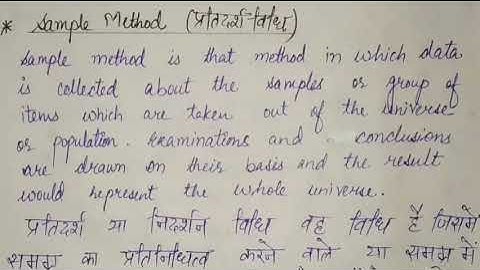 * Sample Method (प्रतिदर्श विधि)
Sample method is that method in which data
is collected about the samples or group of
items which are taken out of the universe
or population. Examinations and conclusions
are drawn on their basis and the result
would represent the whole universe.
प्रतिदर्श या निदर्शन विधि वह विधि है जिसमें
समग्र का प्रतिनिधित्व करने वाले या समग्र में